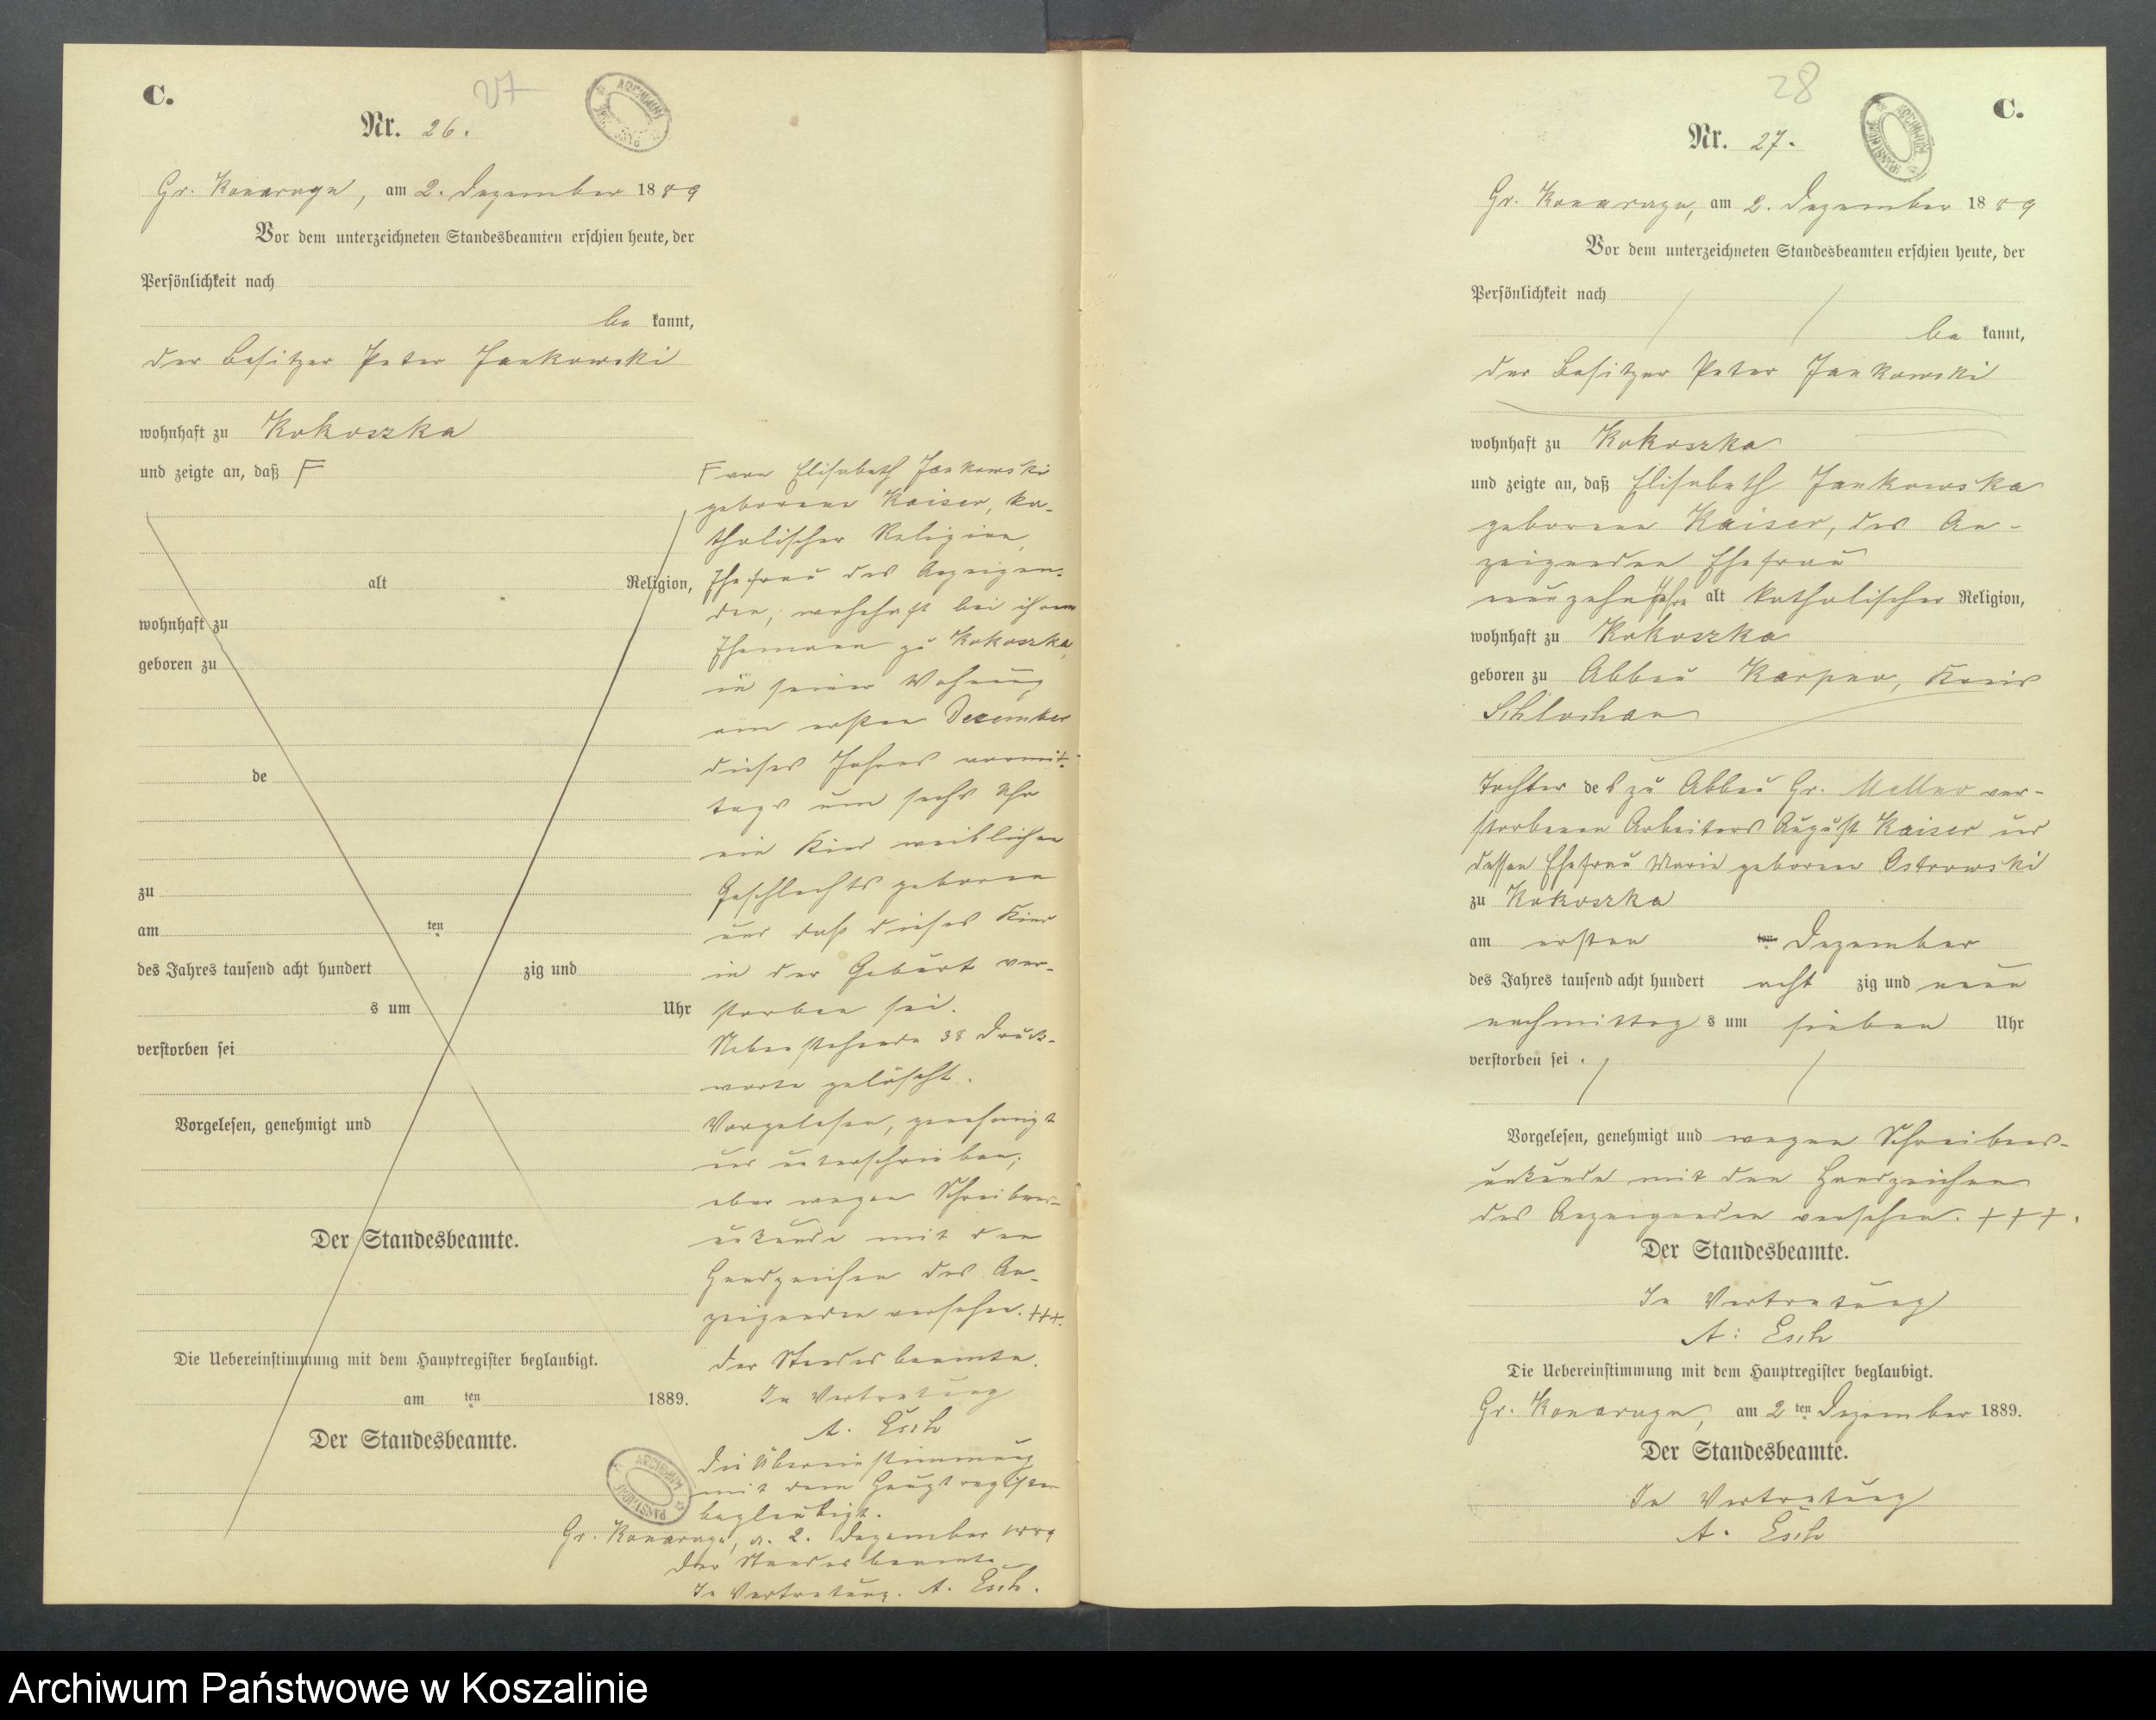 C.
27
Nr. 26.
Gr. Konarczyn, am 2. Dezember 1889
Vor dem unterzeichneten Standesbeamten erschien heute, der
Persönlichkeit nach
be kannt,
der Besitzer Peter Jankowski
wohnhaft zu Kokoszka
und zeigte an, daß F
alt Religion,
wohnhaft zu
geboren zu
de
zu
am ten
des Jahres tausend acht hundert zig und
s um Uhr
verstorben sei
Vorgelesen, genehmigt und
Der Standesbeamte.
Die Uebereinstimmung mit dem Hauptregister beglaubigt.
am ten 1889.
Der Standesbeamte.
F von Elisabeth Jankowski
geborene Kaiser, ka-
tholischer Religion,
Ehefrau des Anzeigen-
den, wohnhaft bei ihrem
Ehemann zu Kokoszka,
in seiner Wohnung
am ersten Dezember
dieses Jahres vormit-
tags um sechs Uhr
ein Kind weiblichen
Geschlechts geboren
und daß dieses Kind
in der Geburt ver-
storben sei.
Nebenstehende 38 Druck-
worte gelöscht.
Vorgelesen, genehmigt
und unterschrieben;
aber wegen Schreibens-
unkunde mit den
Handzeichen des An-
zeigenden versehen. +++.
Der Standesbeamte.
In Vertretung
A. Esch
Die Übereinstimmung
mit dem Hauptregister
beglaubigt.
Gr. Konarczyn, a. 2. Dezember 1889
Der Standesbeamte
In Vertretung. A. Esch.
ARCHIWUM
28
C.
Nr. 27.
Gr. Konarczyn, am 2. Dezember 1889
Vor dem unterzeichneten Standesbeamten erschien heute, der
Persönlichkeit nach
be kannt,
der Besitzer Peter Jankowski
wohnhaft zu Kokoszka
und zeigte an, daß Elisabeth Jankowska
geborene Kaiser, des An-
zeigenden Ehefrau
neunzehn Jahre alt katholischer Religion,
wohnhaft zu Kokoszka
geboren zu Abbau Karpno, Kreis
Schlochau
Tochter des zu Abbau Gr. ver-
storbenen Arbeiters August Kaiser und
dessen Ehefrau Marie geborene Ostrowski
zu Kokoszka
am ersten ten Dezember
des Jahres tausend acht hundert acht zig und neun
nachmittag s um sieben Uhr
verstorben sei.
Vorgelesen, genehmigt und wegen Schreibens-
unkunde mit den Handzeichen
des Anzeigenden versehen. +++.
Der Standesbeamte.
In Vertretung
A. Esch
Die Uebereinstimmung mit dem Hauptregister beglaubigt.
Gr. Konarczyn, am 2 ten Dezember 1889.
Der Standesbeamte.
In Vertretung
A. Esch
Archiwum Państwowe w Koszalinie